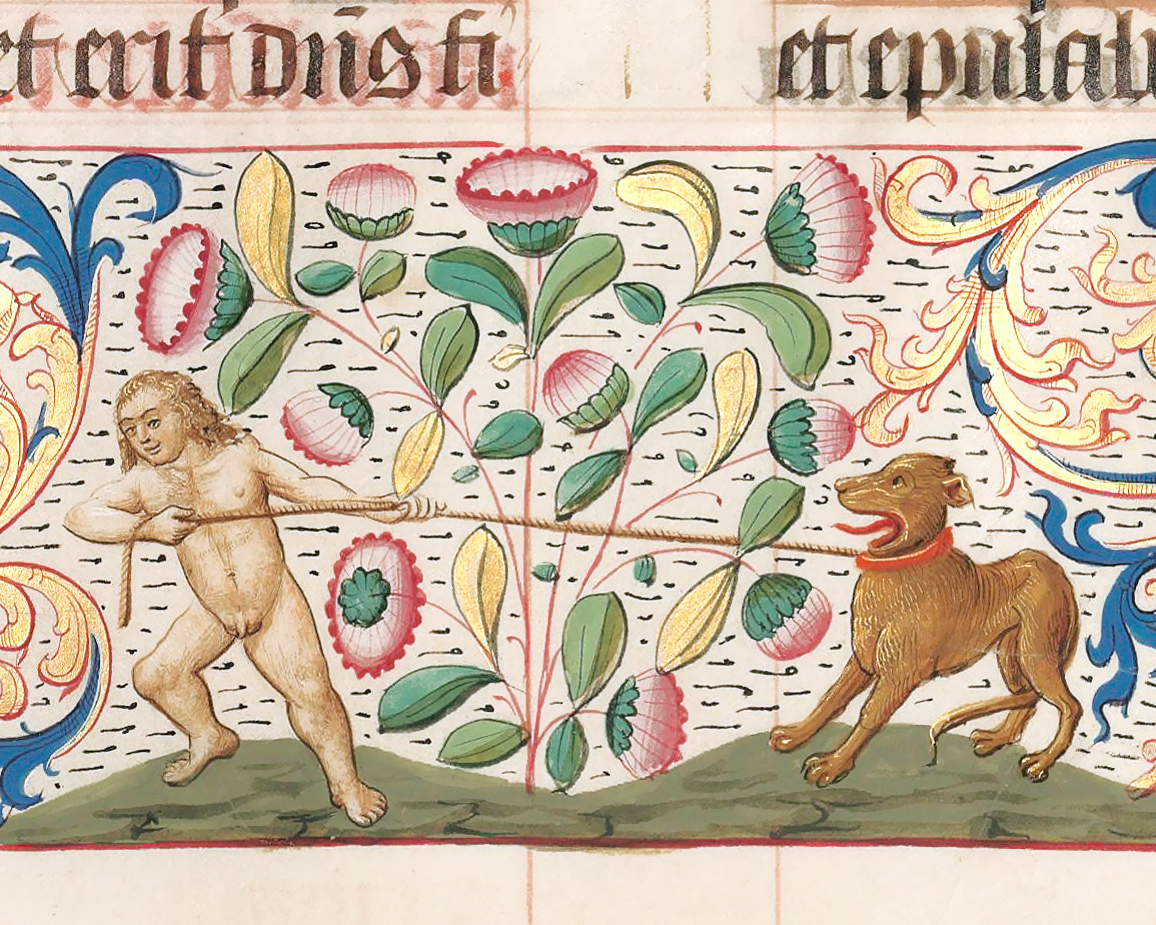 et erit dn̄s fi
et epulab